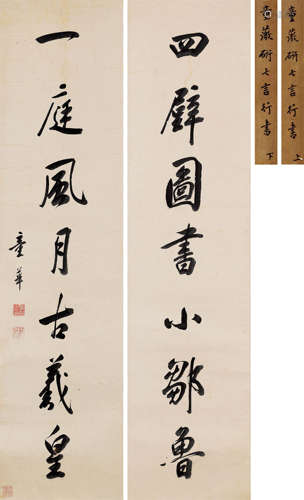 四壁圖書小鄒魯
一庭風月古羲皇
童華
童薇研七言行書 上
童薇研七言行書 下